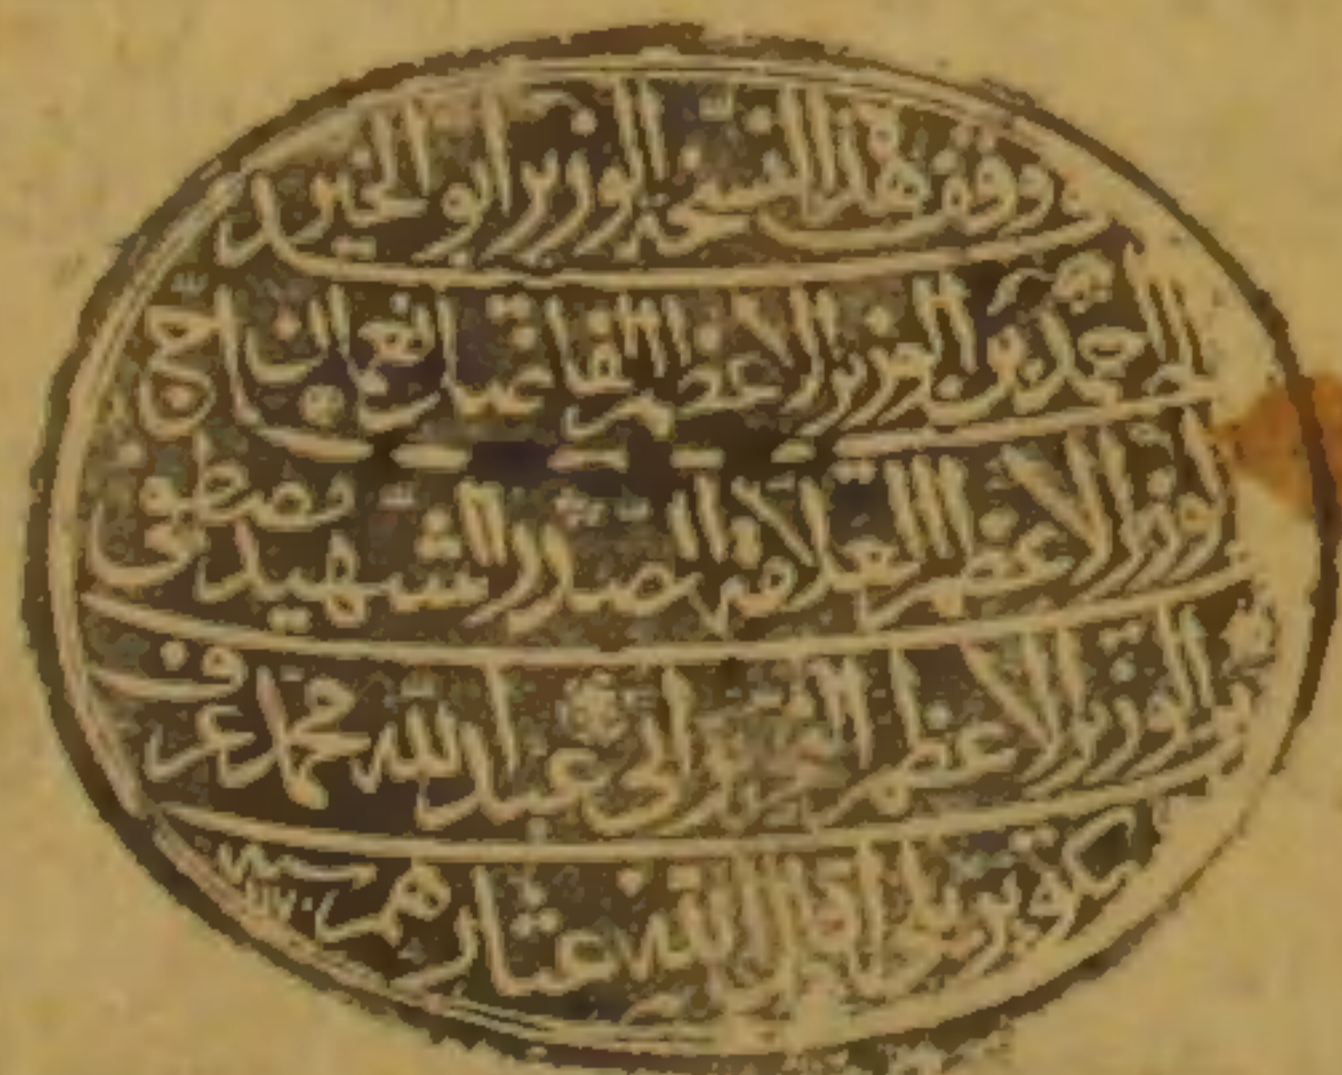 و وقف هذا النسخة الوزير ابو الخير
الحاج احمد بن الوزير الاعظم الفاتح نعمان اخى
الوزير الاعظم العلامة الصدر الشهيد مصطفى
بنو الوزير الاعظم النحرير ابى عبد الله محمد عرف
بكوپريلى اقال الله عثارهم